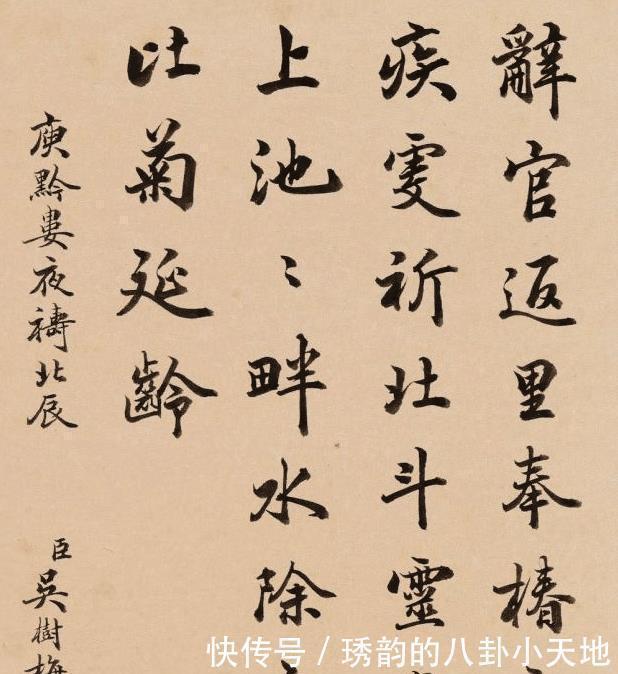 辭官返里奉椿
疾祈北斗靈
上池〻畔水除
比菊延齡
庾黔婁夜禱北辰
臣吳樹梅
快传号 / 琇韵的八卦小天地